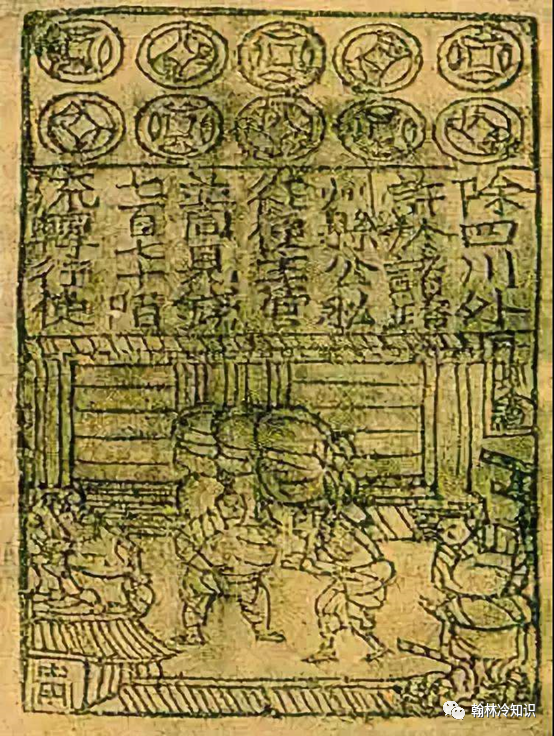 除四川外
許於諸路
州縣公私
從便主管
並同見錢
七百七十陌
流轉行使
翰林冷知识